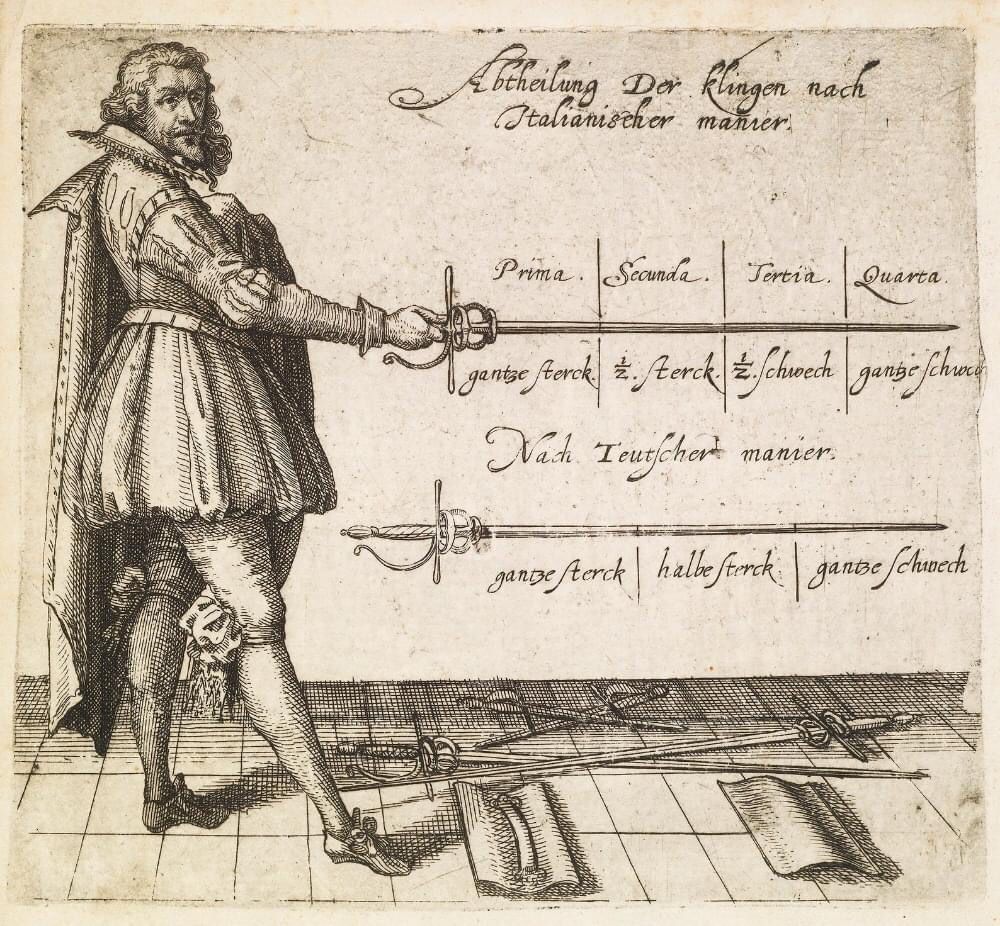 Abtheilung Der klingen nach
Italianischer manier.
Prima. Secunda. Tertia. Quarta.
gantze sterck. ½. sterck. ½. schwech gantze schwech
Nach Teutscher manier.
gantze sterck halbe sterck gantze schwech